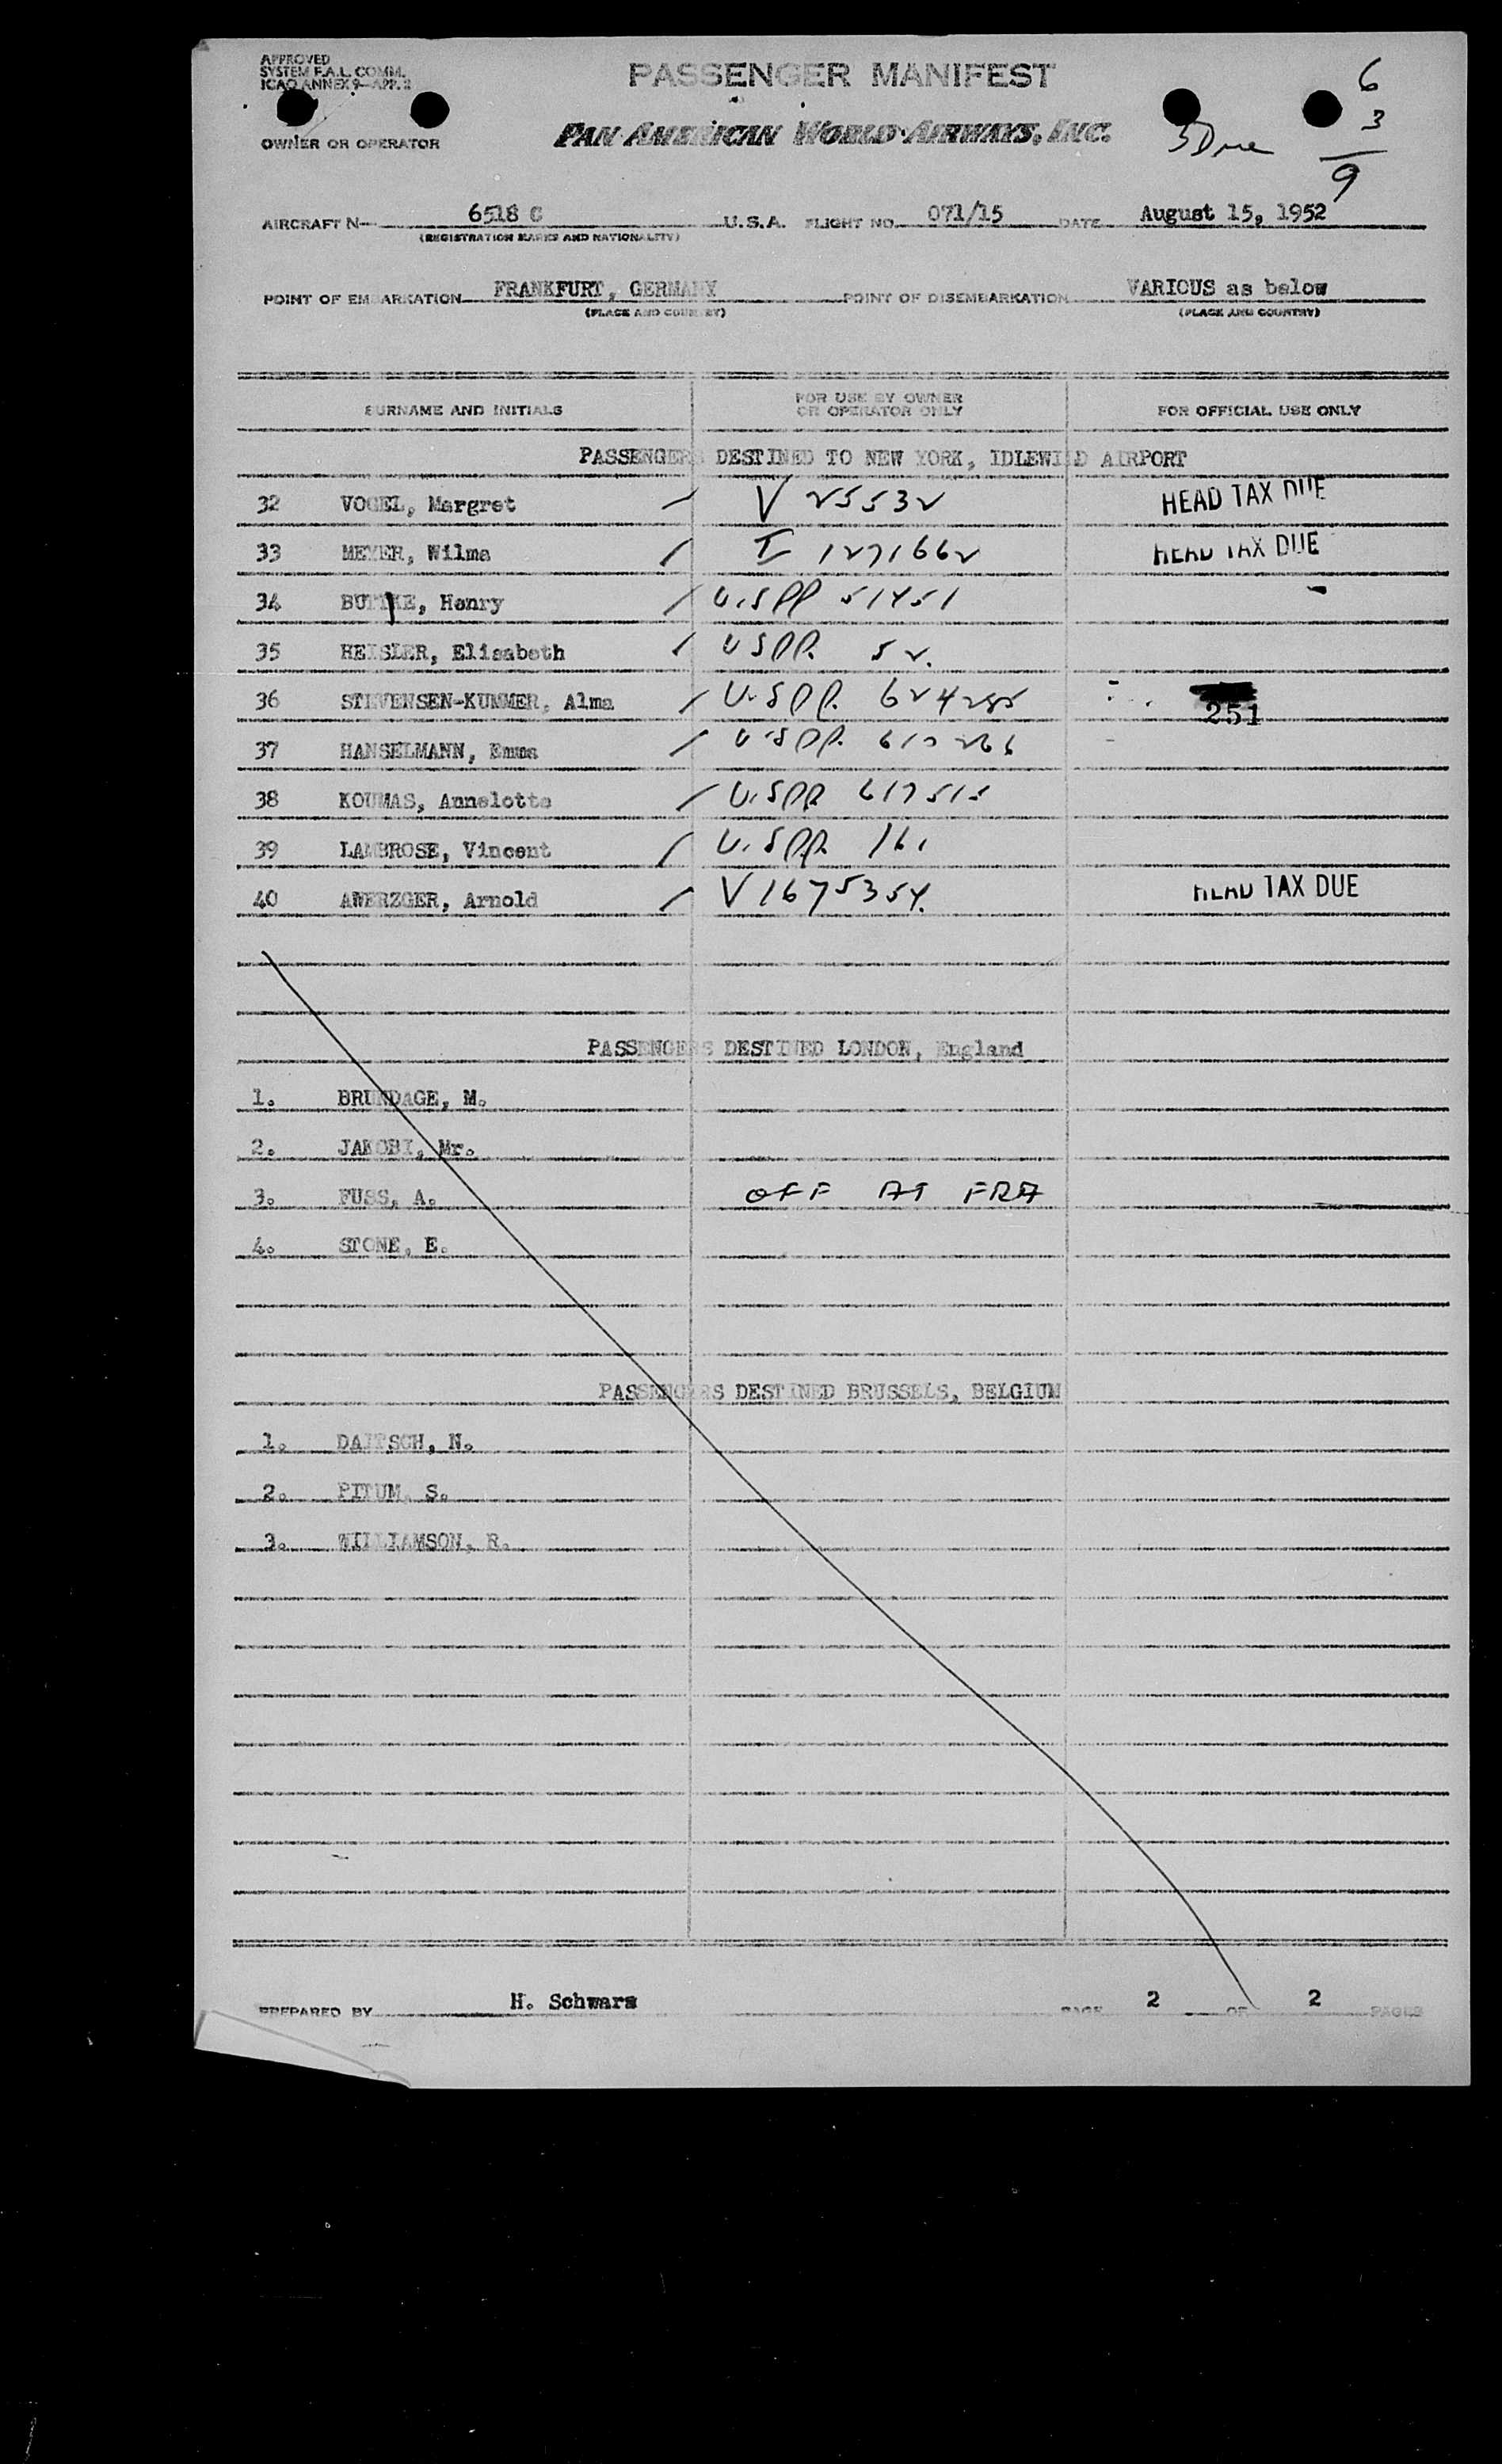 APPROVED
SYSTEM F.A.L. COMM.
ICAO ANNEX 9—APP. 3
PASSENGER MANIFEST
6
3
9
OWNER OR OPERATOR
PAN AMERICAN WORLD AIRWAYS, INC.
3 Due
AIRCRAFT N— 6518 C U.S.A. FLIGHT NO. 071/15 DATE August 15, 1952
(REGISTRATION MARKS AND NATIONALITY)
POINT OF EMBARKATION FRANKFURT, GERMANY POINT OF DISEMBARKATION VARIOUS as below
(PLACE AND COUNTRY) (PLACE AND COUNTRY)
SURNAME AND INITIALS FOR USE BY OWNER OR OPERATOR ONLY FOR OFFICIAL USE ONLY
PASSENGERS DESTINED TO NEW YORK, IDLEWILD AIRPORT
32 VOGEL, Margret V 25532 HEAD TAX DUE
33 MEYER, Wilma I 1271662 HEAD TAX DUE
34 Henry U.SPP 51451
35 HEISLER, Elisabeth USPP. 52.
36 STEVENSEN-KUMMER, Alma U.SPP. 624285 251
37 HANSELMANN, Emma U.SPP.
38 KOUMAS, Annelotte U.SPP 617515
39 LAMBROSE, Vincent U.SPP. 161
40 AWERZGER, Arnold V 1675354. HEAD TAX DUE
PASSENGERS DESTINED LONDON, England
1. BRUNDAGE, M.
2. JAKOBI, Mr.
3. FUSS, A. OFF AT FRA
4. STONE, E.
PASSENGERS DESTINED BRUSSELS, BELGIUM
1. DAITSCH, N.
2. PITUM, S.
3. WILLIAMSON, R.
PREPARED BY H. Schwarz PAGE 2 OF 2 PAGES